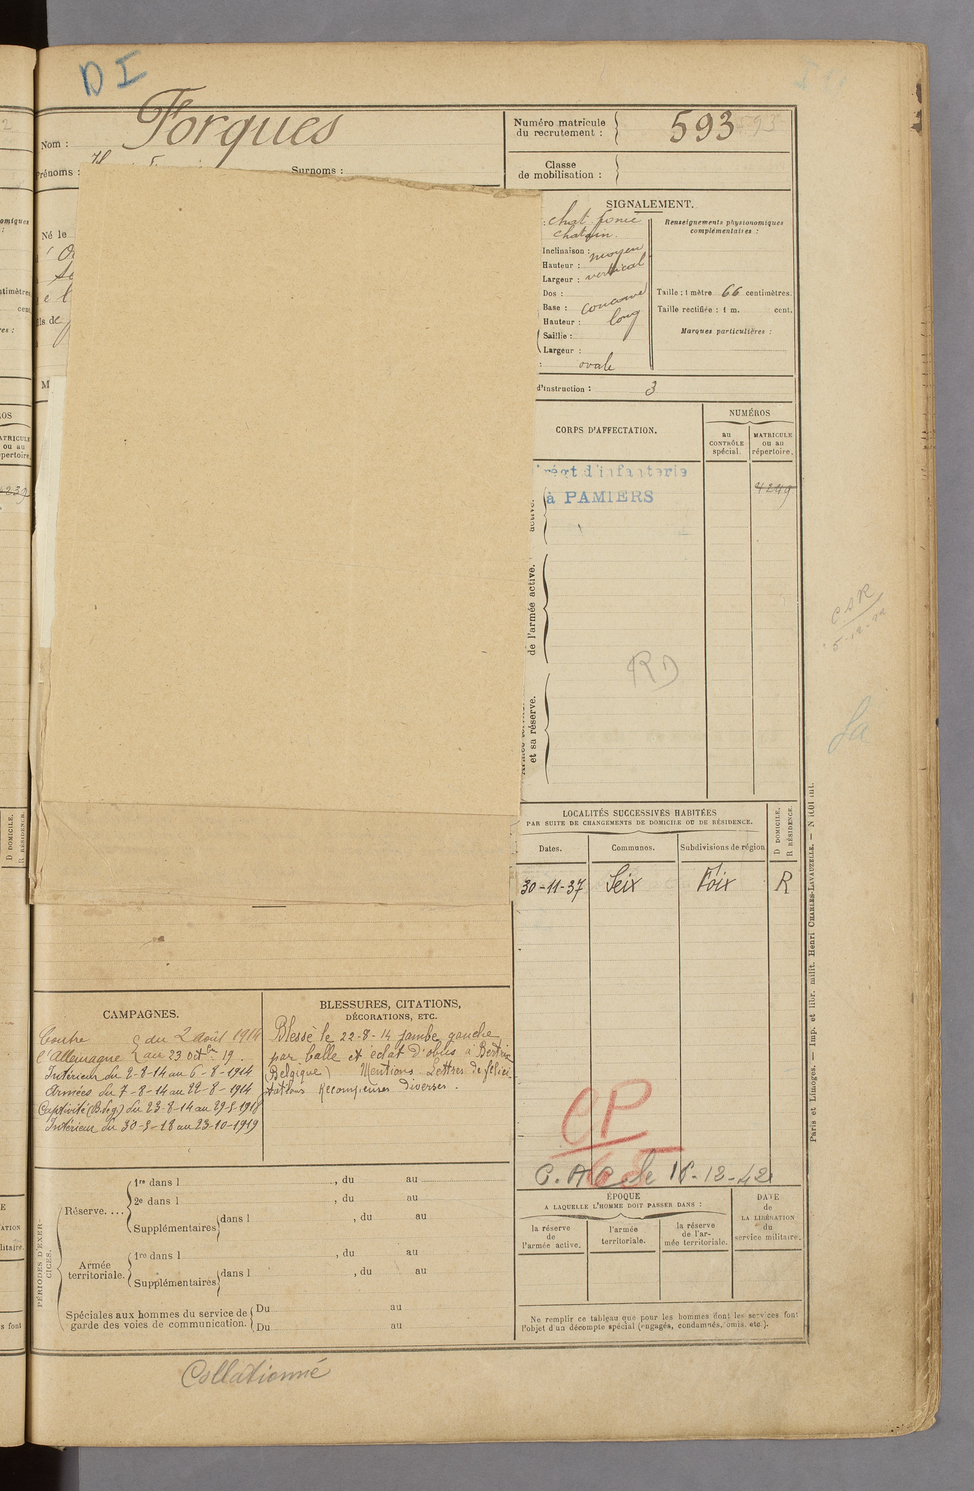 D I
Nom : Forgues
Prénoms :
Surnoms :
Numéro matricule
du recrutement :
593
Classe
de mobilisation :
Né le
ls de
M
SIGNALEMENT.
chat. foncé
chatain
Inclinaison : moyen
Hauteur :
Largeur : vertical
Dos :
Base : concave
Hauteur : long
Saillie :
Largeur :
: ovale
Renseignements physionomiques
complémentaires :
Taille : 1 mètre 66 centimètres.
Taille rectifiée : 1 m. cent.
Marques particulières :
d'instruction : 3
CORPS D'AFFECTATION.
NUMÉROS
au
CONTRÔLE
spécial.
MATRICULE
ou au
répertoire.
régt d'infanterie
à PAMIERS
4249
active.
de l'armée active.
et sa réserve.
RD
CSR
5-12-42
LOCALITÉS SUCCESSIVES HABITÉES
PAR SUITE DE CHANGEMENTS DE DOMICILE OU DE RÉSIDENCE.
D DOMICILE.
R RÉSIDENCE.
Dates.
Communes.
Subdivisions de région
30-11-37 Seix Foix R
CAMPAGNES.
Contre du 2 août 1914
l'Allemagne au 23 octbre 19.
Intérieur du 2-8-14 au 6-8-1914
Armées du 7-8-14 au 22-8-1914
Captivité (Belg.) du 23-8-14 au 29-5-1918
Intérieur du 30-5-18 au 23-10-1919
BLESSURES, CITATIONS,
DÉCORATIONS, ETC.
Blessé le 22-8-14 jambe gauche
par balle et éclat d'obus à Bertrix
(Belgique) Mentions Lettres de félici-
tations Récompenses diverses.
CP
C.A.C. le 18-12-42
PÉRIODES D'EXER-
CICES.
Réserve. ....
1re dans l , du au
2e dans l , du au
Supplémentaires dans l , du au
Armée
territoriale.
1re dans l , du au
Supplémentaires dans l , du au
Spéciales aux hommes du service de
garde des voies de communication.
Du au
Du au
ÉPOQUE
A LAQUELLE L'HOMME DOIT PASSER DANS :
la réserve
de
l'armée active.
l'armée
territoriale.
la réserve
de l'ar-
mée territoriale.
DATE
de
LA LIBÉRATION
du
service militaire.
Ne remplir ce tableau que pour les hommes dont les services font
l'objet d'un décompte spécial (engagés, condamnés, omis, etc.).
Paris et Limoges. — Imp. et libr. milit. Henri CHARLES-LAVAUZELLE. —
Collationné